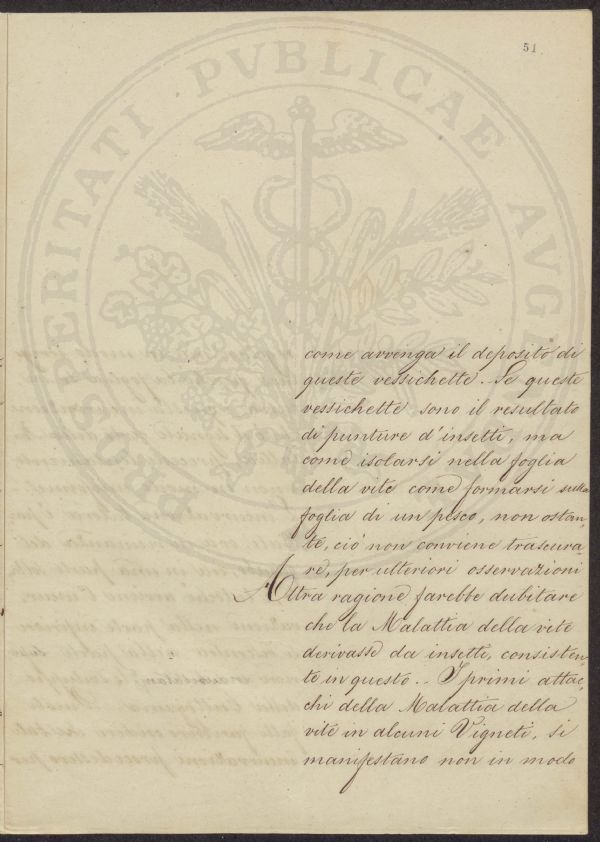 51
PROSPERITATI PVBLICAE AVGENDAE
come avvenga il deposito di
queste vessichette. Se queste
vessichette sono il resultato
di punture d'insetti, ma
come isolarsi nella foglia
della vite come formarsi sulla
foglia di un pesco, non ostan„
te, ciò non conviene trascura„
re, per ulteriori osservazioni
Altra ragione farebbe dubitare
che la Malattia della vite
derivasse da insetti, consisten„
te in questo.. I primi attac„
chi della Malattia della
vite in alcuni Vigneti, si
manifestano non in modo